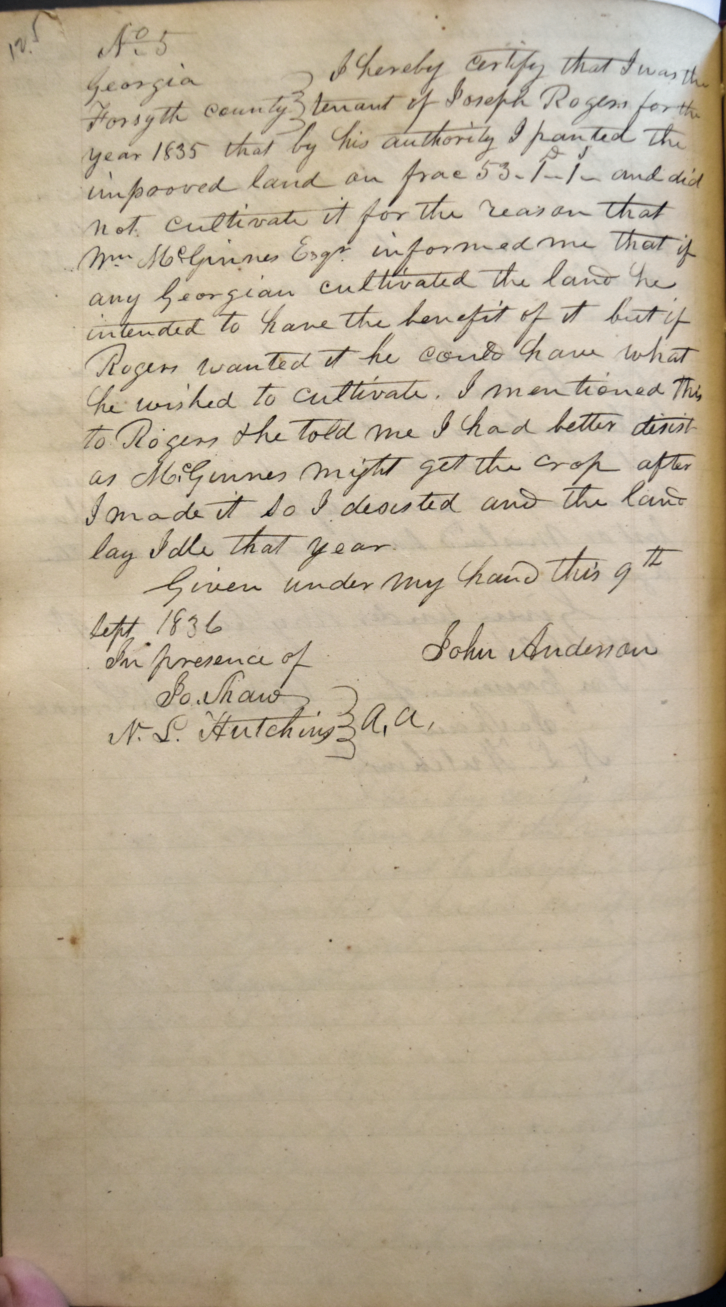 125
No 5
Georgia } I hereby certify that I was the
Forsyth county } tenant of Joseph Rogers for the
year 1835 that by his authority I panted the
improved land on frac 53-1d-1s- and did
not cultivate it for the reason that
Wm McGinnes Esqr informed me that if
any Georgian cultivated the land he
intended to have the benefit of it but if
Rogers wanted it he could have what
he wished to cultivate. I mentioned this
to Rogers & he told me I had better desist
as McGinnes might get the crop after
I made it so I desisted and the land
lay Idle that year.
Given under my hand this 9th
Sept 1836
In presence of John Anderson
Jo. Shaw
N. L. Hutchins } A, A,